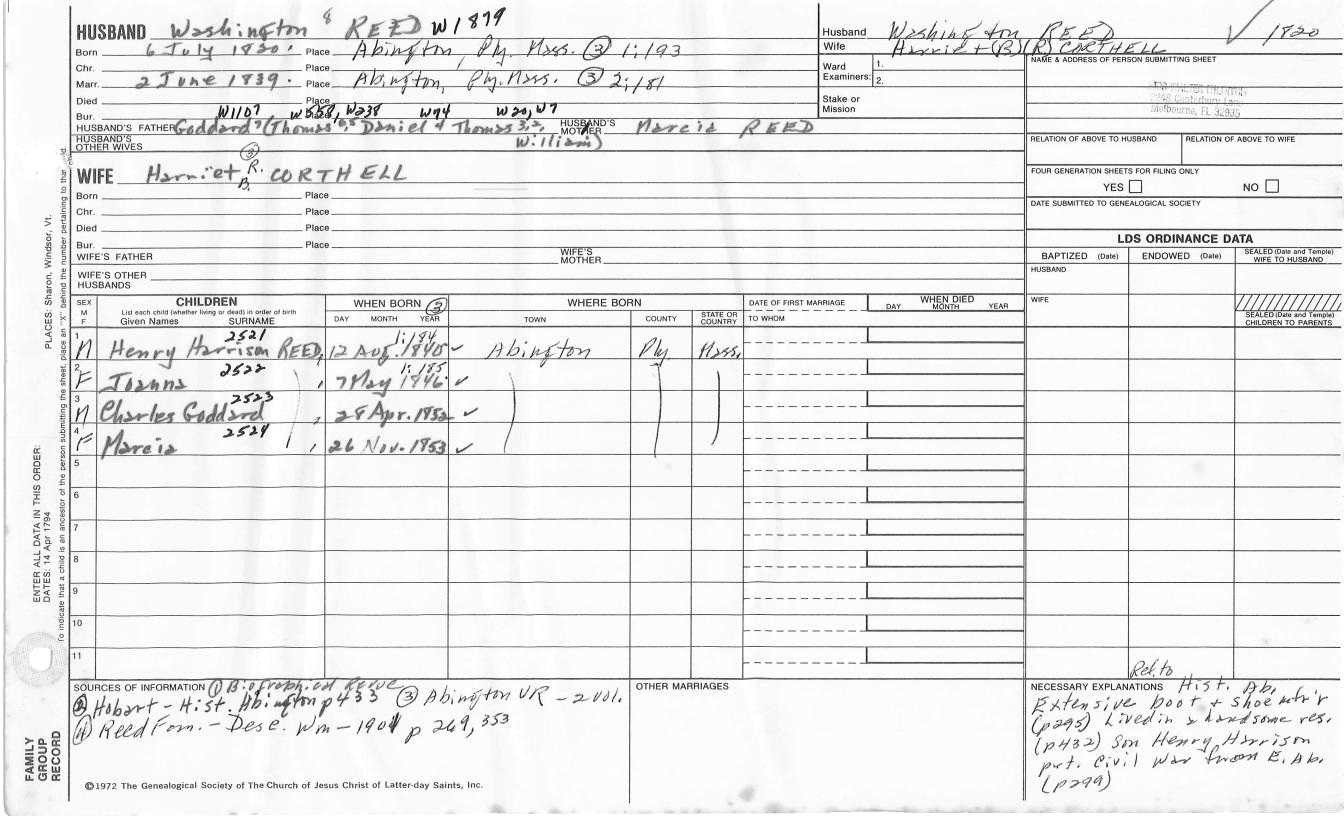 HUSBAND Washington 8 REED W1879
Born 6 July 1820. Place Abington, Ply. Mass. ③ 1:193
Chr. Place
Marr. 2 June 1839. Place Abington, Ply. Mass. ③ 2:181
Died Place
Bur. Place
W1107 W238 W94 W20, W7
HUSBAND'S FATHER Goddard 7 (Thomas 6,5 Daniel 4 Thomas 3,2, William)
HUSBAND'S MOTHER Marcia REED
HUSBAND'S OTHER WIVES
Husband Washington REED 1820
Wife Harriet (B) (R) CORTHELL
Ward Examiners: 1.
2.
Stake or Mission
NAME & ADDRESS OF PERSON SUBMITTING SHEET
Melbourne, FL 32935
RELATION OF ABOVE TO HUSBAND
RELATION OF ABOVE TO WIFE
FOUR GENERATION SHEETS FOR FILING ONLY
YES NO
DATE SUBMITTED TO GENEALOGICAL SOCIETY
WIFE Harriet R. B. ③ CORTHELL
Born Place
Chr. Place
Died Place
Bur. Place
WIFE'S FATHER
WIFE'S MOTHER
WIFE'S OTHER HUSBANDS
LDS ORDINANCE DATA
BAPTIZED (Date) ENDOWED (Date) SEALED (Date and Temple) WIFE TO HUSBAND
HUSBAND
WIFE
SEALED (Date and Temple) CHILDREN TO PARENTS
SEX M F
CHILDREN
List each child (whether living or dead) in order of birth
Given Names SURNAME
WHEN BORN ③
DAY MONTH YEAR
WHERE BORN
TOWN COUNTY STATE OR COUNTRY
DATE OF FIRST MARRIAGE
TO WHOM
WHEN DIED
DAY MONTH YEAR
2521 1:184
1 M Henry Harrison REED, 12 Aug. 1840 ✓ Abington Ply Mass.
2522 1:185
2 F Joanna , 7 May 1846 ✓
2523
3 M Charles Goddard , 28 Apr. 1852 ✓
2524
4 F Marcia , 26 Nov. 1853 ✓
5
6
7
8
9
10
11
SOURCES OF INFORMATION ① Biographical Revue
② Hobart - Hist. Abington p433 ③ Abington VR - 2 vol.
④ Reed Fam. - Desc. Wm - 1901 p 269, 353
OTHER MARRIAGES
©1972 The Genealogical Society of The Church of Jesus Christ of Latter-day Saints, Inc.
Rel. to
NECESSARY EXPLANATIONS Hist. Ab.
Extensive boot + shoe mfr'r
(p295) Lived in a handsome res.
(p432) Son Henry Harrison
pvt. Civil War from E. Ab.
(p299)
PLACES: Sharon, Windsor, Vt.
To indicate that a child is an ancestor of the person submitting the sheet, place an "X" behind the number pertaining to that child.
ENTER ALL DATA IN THIS ORDER:
DATES: 14 Apr 1794
FAMILY
GROUP
RECORD